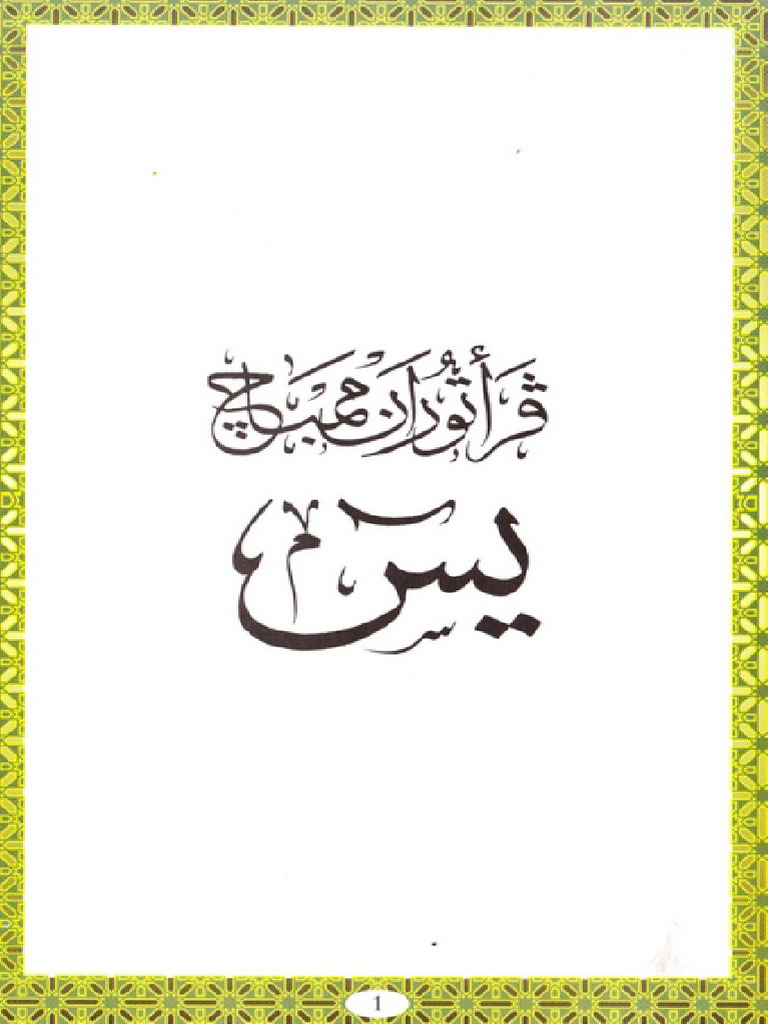 ڤرأتوران ممباچ
يس
1